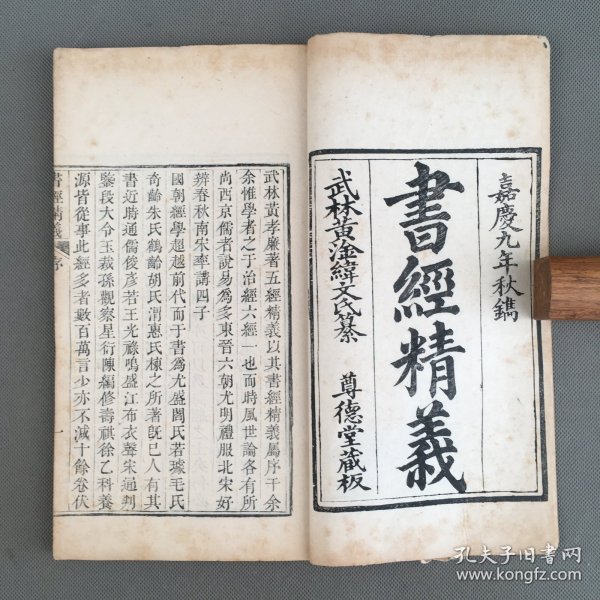 嘉慶九年秋鐫
書經精義
武林黃淦緯文氏纂 尊德堂藏板
武林黃孝廉著五經精義以其書經精義屬序于余
余惟學者之于治經六經一也而時風世論各有所
尚西京儒者說易為多東晉六朝尤明禮服北宋好
辨春秋南宋率講四子
國朝經學超越前代而于書為尤盛閻氏若璩毛氏
奇齡朱氏鶴齡胡氏渭惠氏棟之所著既已人有其
書近時通儒俊彥若王光祿鳴盛江布衣聲宋通判
鑒段大令玉裁孫觀察星衍陳編修壽祺徐乙科養
源皆從事此經多者數百萬言少亦不減十餘卷伏
書經精義 序 一
孔夫子旧书网
www.kongfz.com